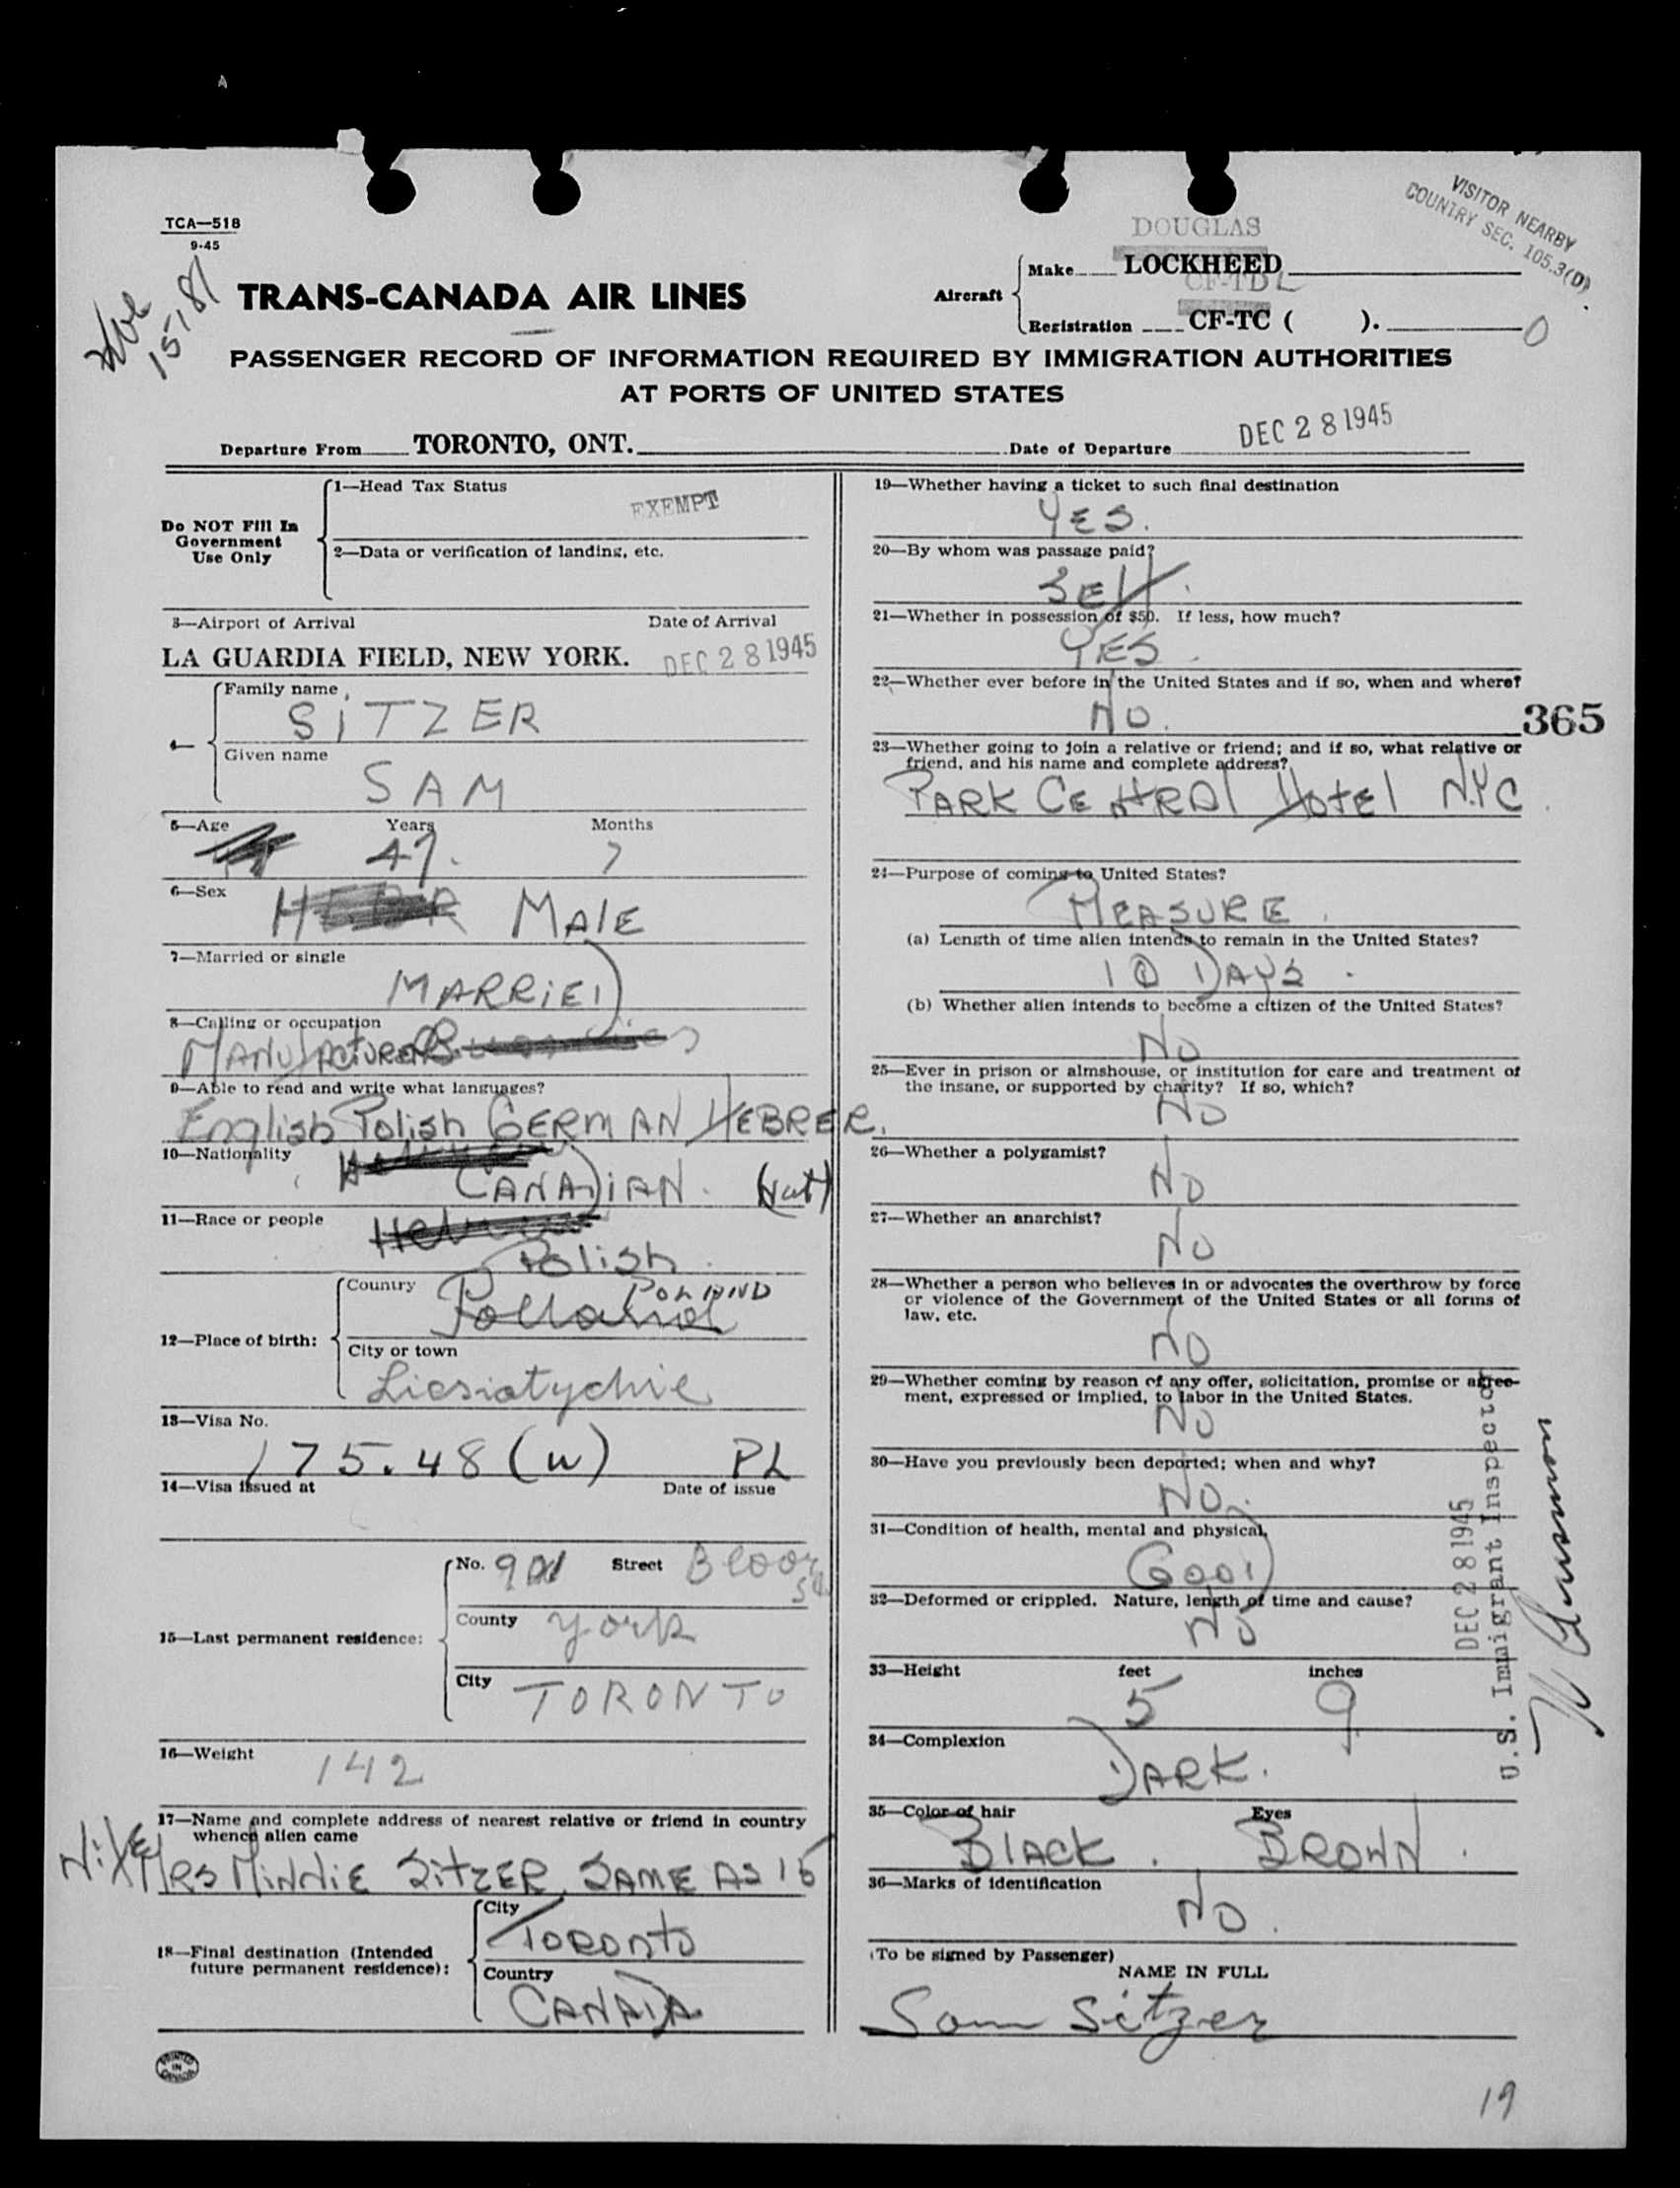 TCA—518
9-45
15-1 81
TRANS-CANADA AIR LINES
DOUGLAS
Aircraft
Make LOCKHEED
CF-TDL
Registration CF-TC ( ).
VISITOR NEARBY
COUNTRY SEC. 105.3(D)
0
PASSENGER RECORD OF INFORMATION REQUIRED BY IMMIGRATION AUTHORITIES
AT PORTS OF UNITED STATES
Departure From TORONTO, ONT. Date of Departure DEC 28 1945
Do NOT Fill In
Government
Use Only
1—Head Tax Status
EXEMPT
2—Data or verification of landing, etc.
3—Airport of Arrival Date of Arrival
LA GUARDIA FIELD, NEW YORK. DEC 28 1945
4—
Family name
SITZER
Given name
SAM
5—Age Years Months
47. 7
6—Sex
MALE
7—Married or single
MARRIED
8—Calling or occupation
MANUFACTURER
9—Able to read and write what languages?
English Polish GERMAN HEBRER.
10—Nationality
CANADIAN. (Nat)
11—Race or people
Polish
12—Place of birth:
Country
POLAND
Polland
City or town
Liesiatychie
13—Visa No.
175.48 (w) PL
14—Visa issued at Date of issue
15—Last permanent residence:
No. 901 Street Bloor
St
County York
City TORONTO
16—Weight
142
17—Name and complete address of nearest relative or friend in country
whence alien came
WIFE MRS MINNIE SITZER, SAME AS 15
18—Final destination (Intended
future permanent residence):
City
TORONTO
Country
CANADA
PRINTED
IN
CANADA
19—Whether having a ticket to such final destination
YES.
20—By whom was passage paid?
SELF.
21—Whether in possession of $50. If less, how much?
YES.
22—Whether ever before in the United States and if so, when and where?
NO.
365
23—Whether going to join a relative or friend; and if so, what relative or
friend, and his name and complete address?
PARK CENTRAL HOTEL NYC.
24—Purpose of coming to United States?
PLEASURE.
(a) Length of time alien intends to remain in the United States?
10 DAYS.
(b) Whether alien intends to become a citizen of the United States?
NO
25—Ever in prison or almshouse, or institution for care and treatment of
the insane, or supported by charity? If so, which?
NO
26—Whether a polygamist?
NO
27—Whether an anarchist?
NO
28—Whether a person who believes in or advocates the overthrow by force
or violence of the Government of the United States or all forms of
law, etc.
NO
29—Whether coming by reason of any offer, solicitation, promise or agree-
ment, expressed or implied, to labor in the United States.
NO
30—Have you previously been deported; when and why?
NO.
31—Condition of health, mental and physical.
GOOD
32—Deformed or crippled. Nature, length of time and cause?
NO
33—Height feet inches
5 9
34—Complexion
DARK.
35—Color of hair Eyes
BLACK. BROWN.
36—Marks of identification
NO.
(To be signed by Passenger)
NAME IN FULL
Sam Sitzer
DEC 28 1945
U.S. Immigrant Inspector
19